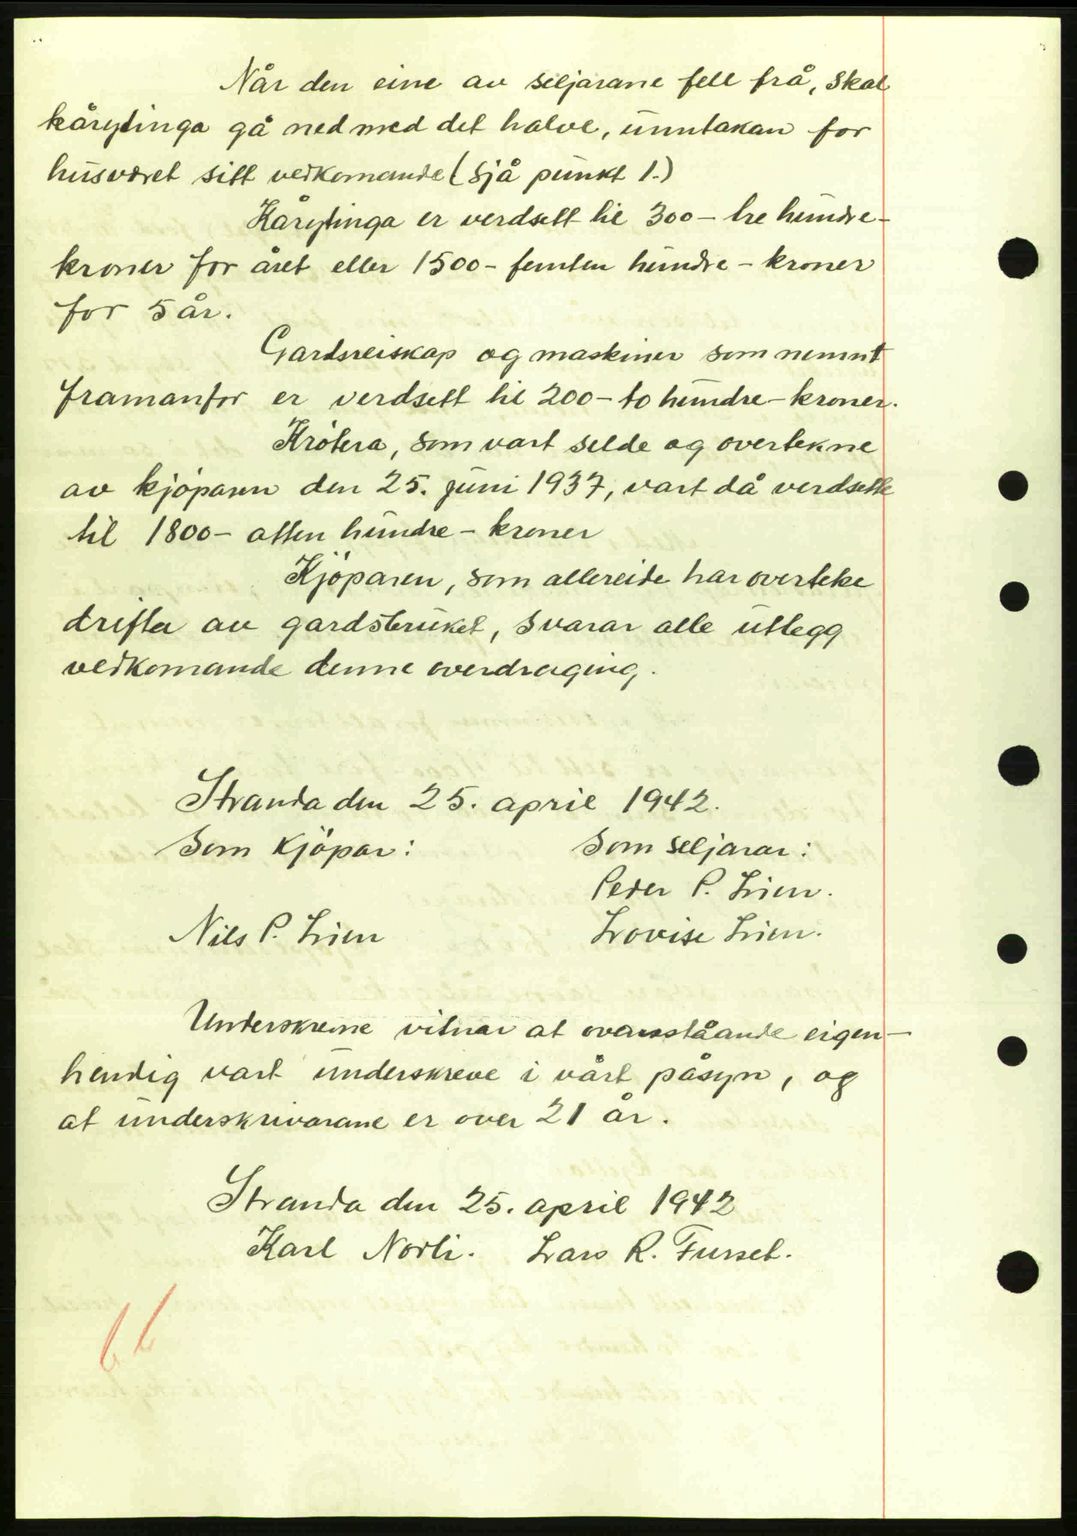 Når den eine av seljarane fell frå, skal
kårytinga gå ned med det halve, unntakan for
husværet sitt vedkomande (sjå punkt 1.)
Kårytinga er verdsett til 300 - tre hundre -
kroner for året eller 1500 - femten hundre - kroner
for 5 år.
Gardsreiskap og maskiner som nemnt
framanfor er verdsett til 200 - to hundre - kroner.
Krøtera, som vart selde og overtekne
av kjöparen den 25. juni 1937, vart då verdsette
til 1800 - atten hundre - kroner
Kjöparen, som allereide har overteke
drifta av gardsbruket, svarar alle utlegg
vedkomande denne overdraging.
Stranda den 25. april 1942.
Som kjöpar:
Som seljarar:
Peder P. Lien.
Nils P. Lien
Lovise Lien.
Underskrivne vitnar at ovanståande eigen-
hendig vart underskreve i vårt påsyn, og
at underskrivarane er over 21 år.
Stranda den 25. april 1942
Karl Norli. Lars R. Furset.